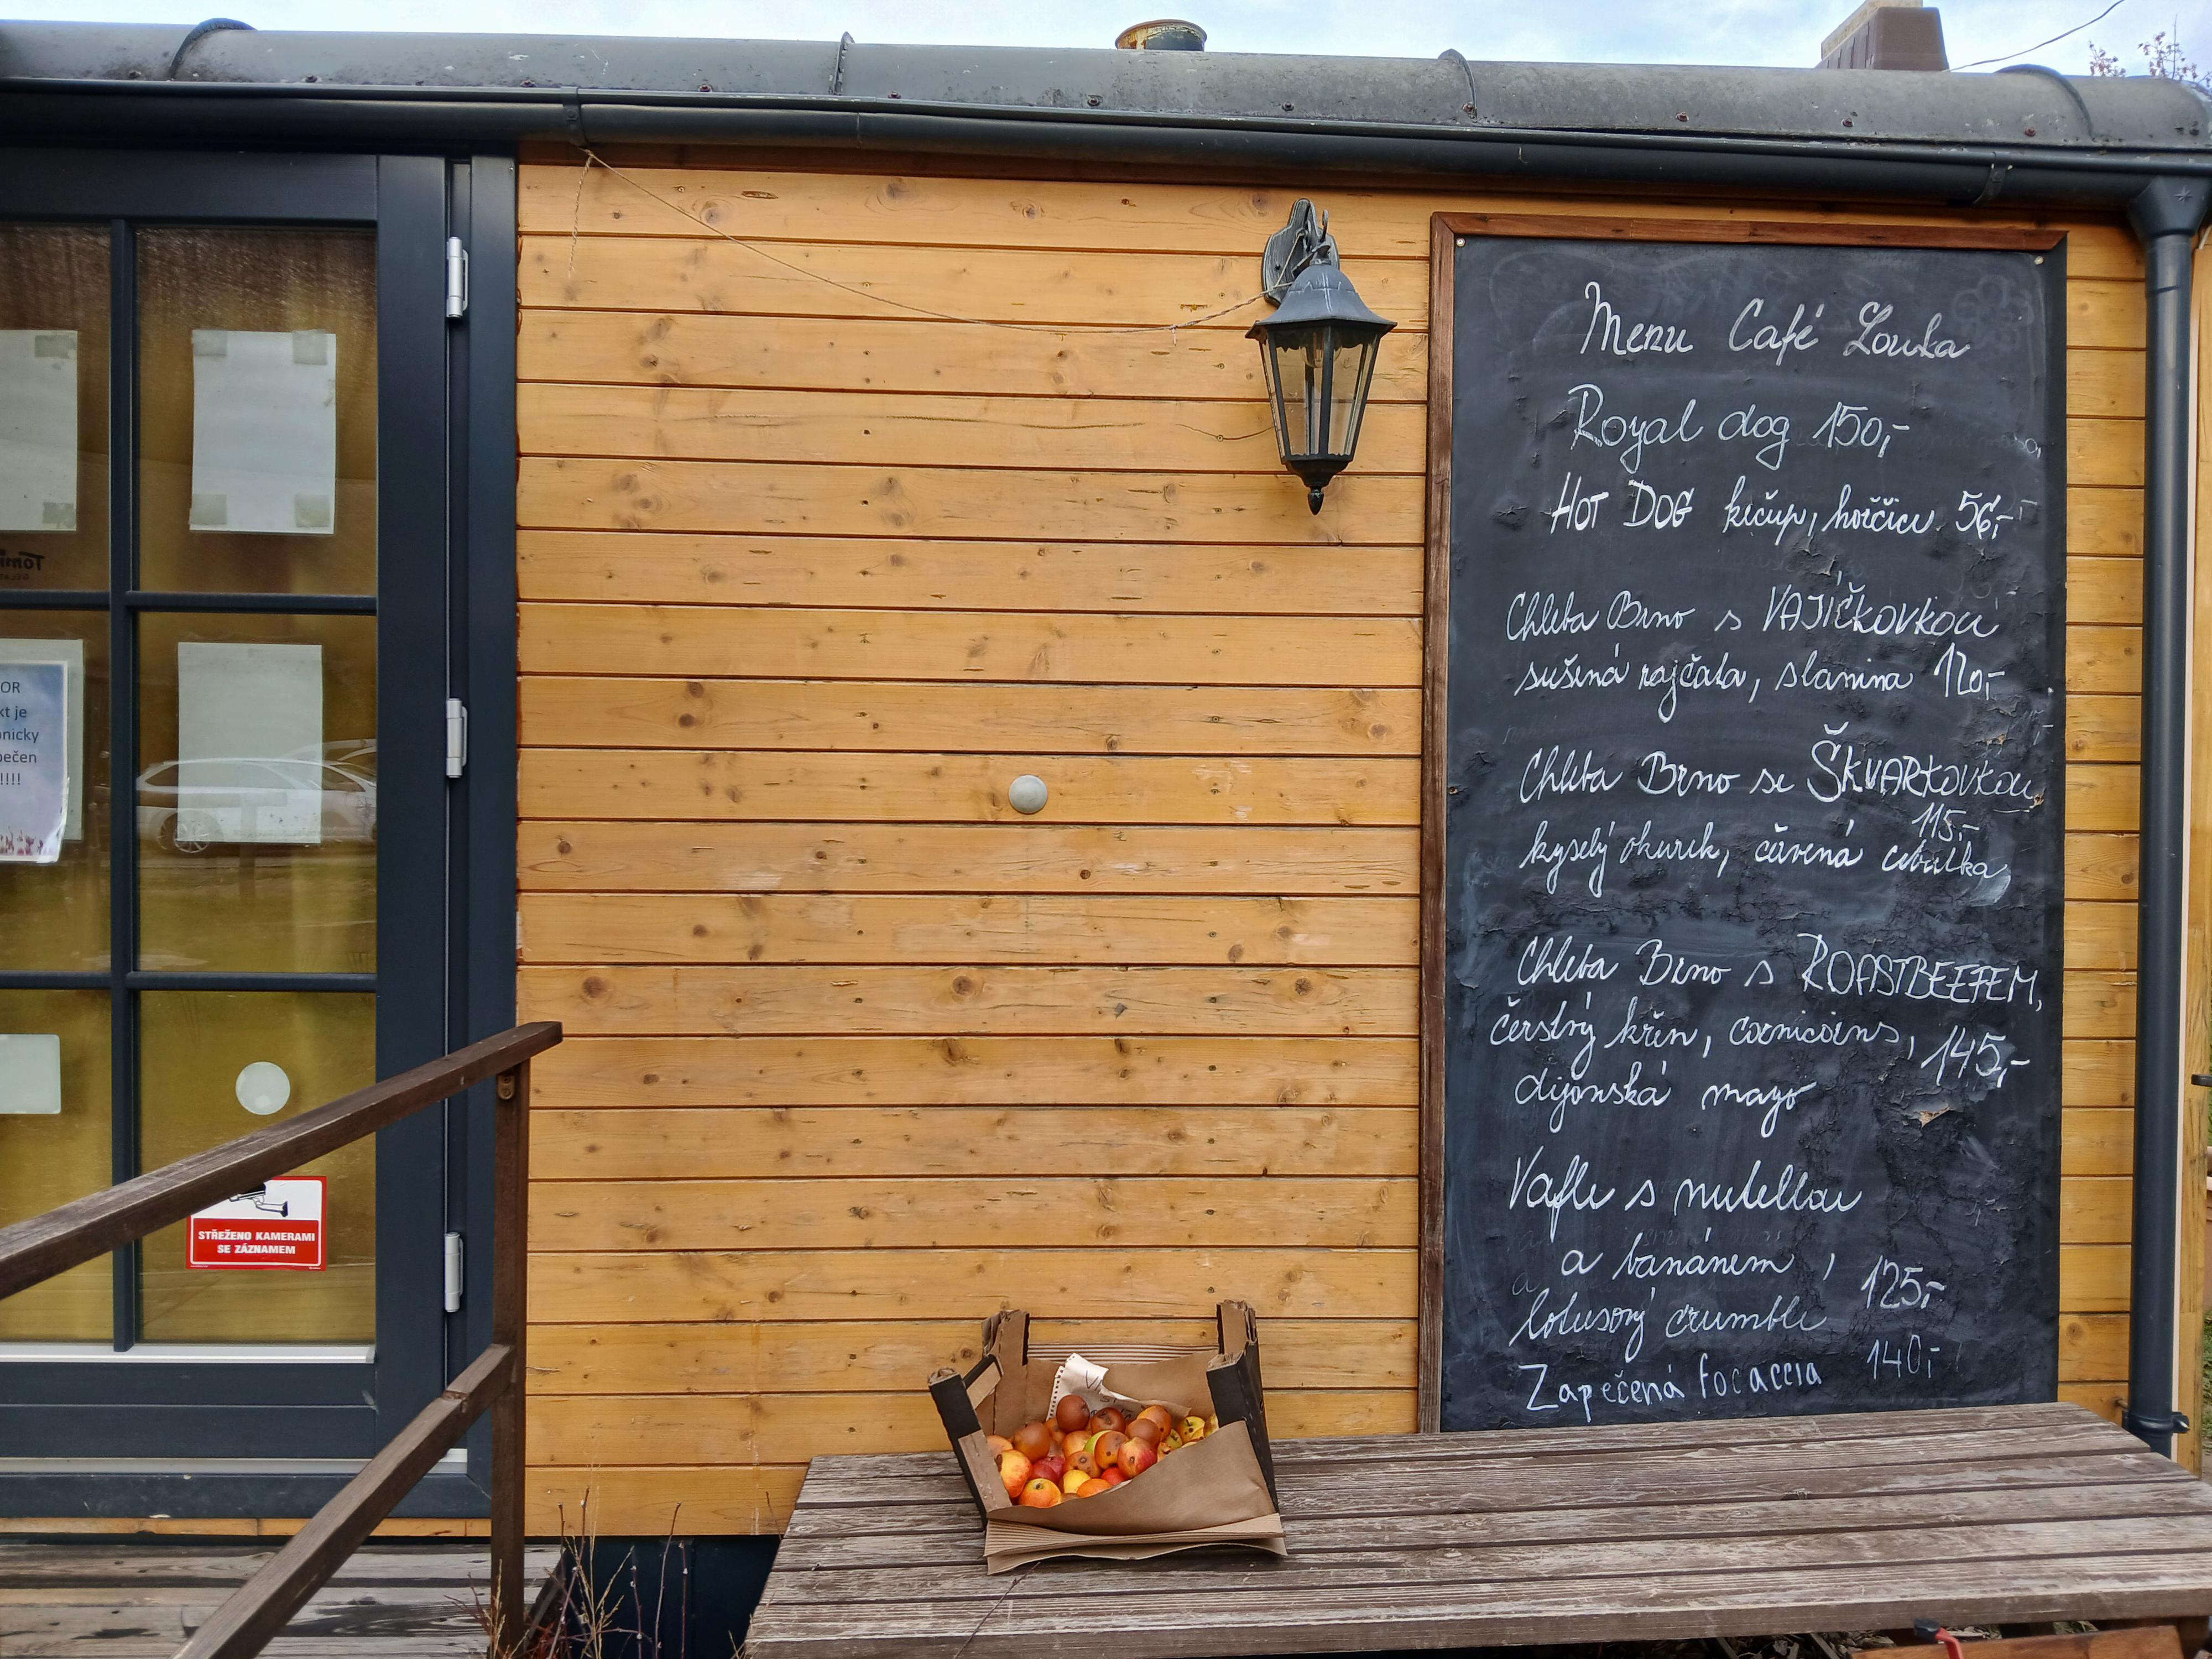 OR
kt je
onicky
pečen
!!!!
STŘEŽENO KAMERAMI
SE ZÁZNAMEM
Menu Café Louka
Royal dog 150,-
HOT DOG kečup, hořčice 56,-
Chleba Brno s VAJÍČKOVKOU
sušená rajčata, slanina 120,-
Chleba Brno se ŠKVARKOVKOU
115,-
kyselý okurek, červená cibulka
Chleba Brno s ROASTBEEFEM,
čerstvý křen, cornicoins, 145,-
dijonská mayo
Vafle s nutellou
a banánem,
125,-
lotusový crumble
Zapečená focaccia 140,-